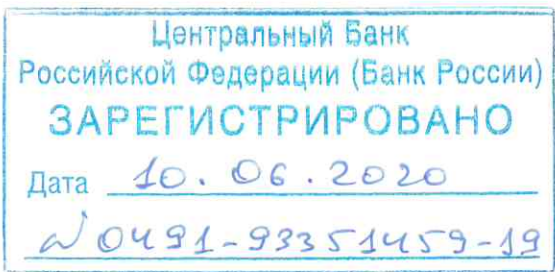 Центральный Банк
Российской Федерации (Банк России)
ЗАРЕГИСТРИРОВАНО
Дата 10.06.2020
№ 0491-93351459-19